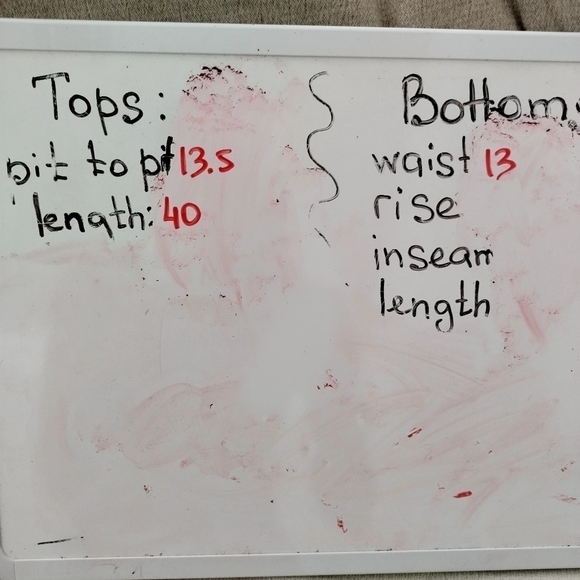 Tops:
pit to pit 13.5
length: 40
Bottom
waist 13
rise
inseam
length